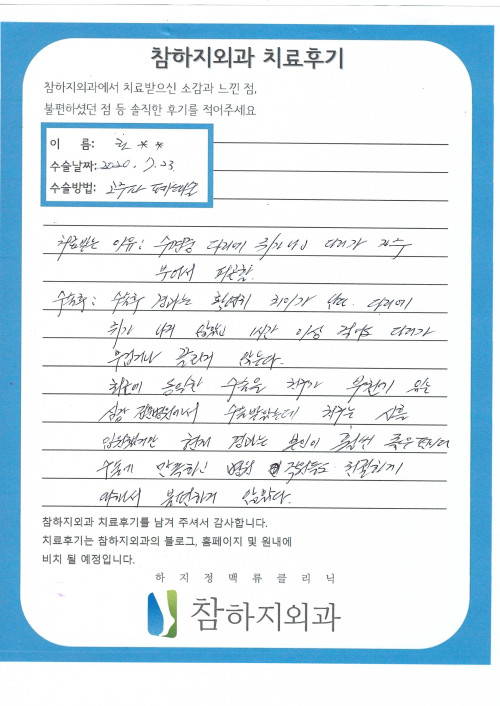 참하지외과 치료후기
참하지외과에서 치료받으신 소감과 느낀 점,
불편하셨던 점 등 솔직한 후기를 적어주세요
이 름: 한 **
수술날짜: 2020. 7. 23
수술방법: 고주파 폐쇄술
치료받는 이유: 수면중 다리에 쥐가 나고 다리가 자주
부어서 피곤함.
수술후: 수술후 결과는 확연히 차이가 난다. 다리에
쥐가 나지 않았고 1시간 이상 걸어도 다리가
무겁거나 끌리지 않는다.
최근에 동일한 수술을 친구가 부천
수술받았는데 친구는 3일
입원했지만 현재 결과는 본인이 훨씬 좋은
수술에 만족하고 병원 직원들도 친절하게
대해서 불편하지 않았다.
참하지외과 치료후기를 남겨 주셔서 감사합니다.
치료후기는 참하지외과의 블로그, 홈페이지 및 원내에
비치 될 예정입니다.
하지정맥류클리닉
참하지외과